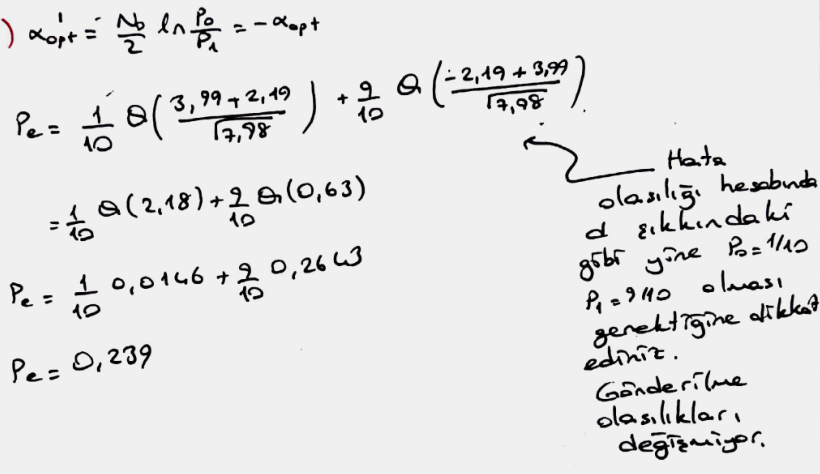 ) α'opt = N₀/2 ln P₀/P₁ = -αopt
Pe = 1/10 Q( (3,99+2,19)/√7,98 ) + 9/10 Q( (-2,19+3,99)/√7,98 )
= 1/10 Q(2,18) + 9/10 Q(0,63)
Pe = 1/10 0,0146 + 9/10 0,2643
Pe = 0,239
Hata
olasılığı hesabında
d şıkkındaki
gibi yine P₀=1/10
P₁=9/10 olması
gerektiğine dikkat
ediniz.
Gönderilme
olasılıkları
değişmiyor.